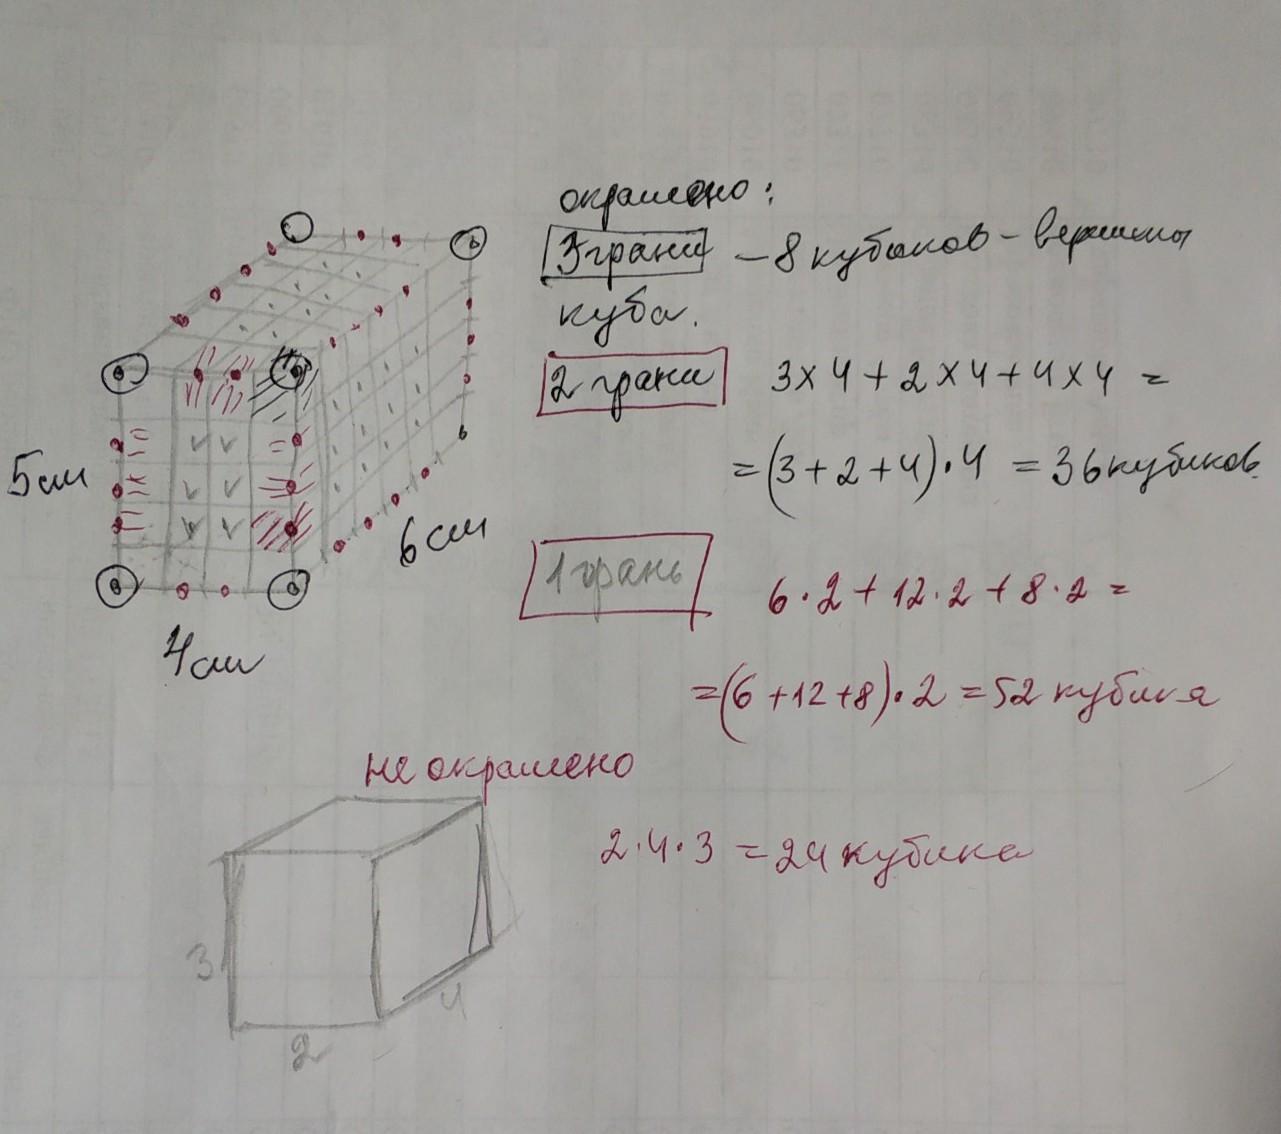 окрашено:
3 грани - 8 кубиков - вершины
куба.
2 грани 3 x 4 + 2 x 4 + 4 x 4 =
= (3 + 2 + 4) · 4 = 36 кубиков.
5 см
6 см
4 см
1 грань 6 · 2 + 12 · 2 + 8 · 2 =
= (6 + 12 + 8) · 2 = 52 кубика
не окрашено
2 · 4 · 3 = 24 кубика
3
4
2